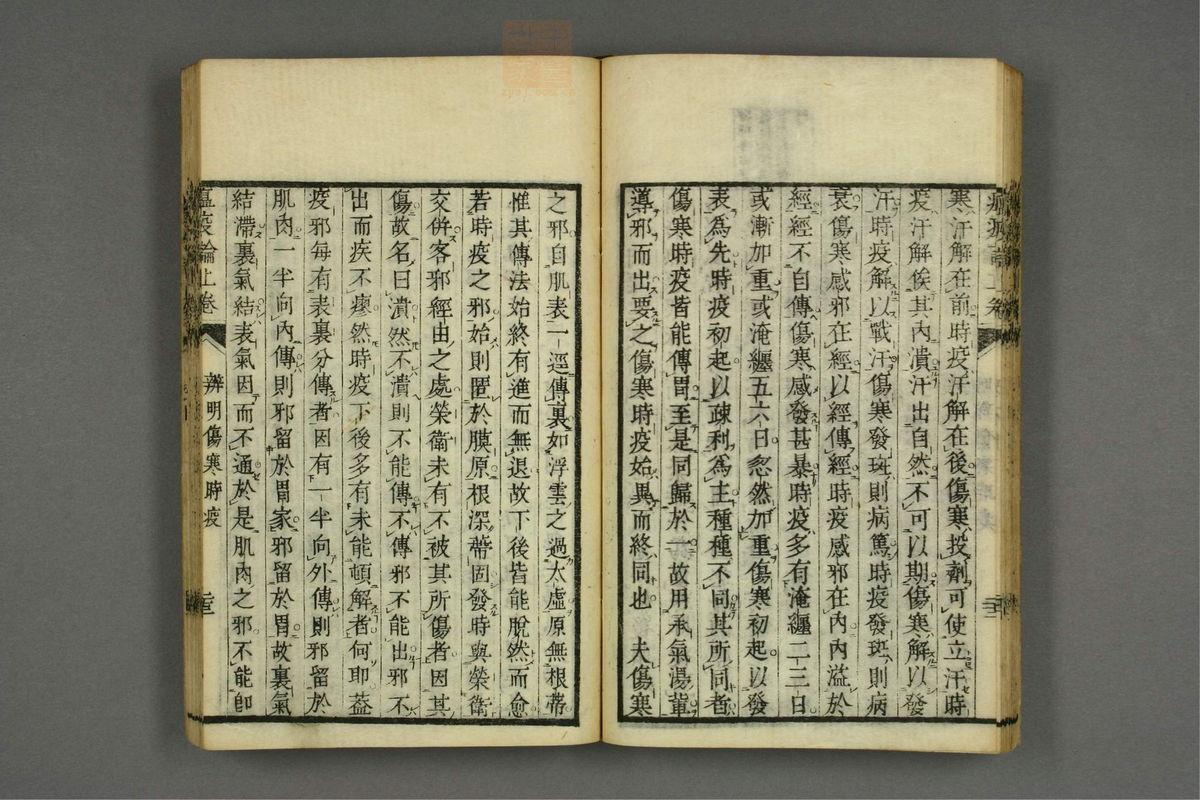 寒汗解在前時疫汗解在後傷寒投劑可使立汗時
疫汗解俟其內潰汗出自然不可以期傷寒解以發
汗時疫解以戰汗傷寒發斑則病篤時疫發斑則病
衰傷寒感邪在經以經傳經時疫感邪在內內溢於
經經不自傳傷寒感發甚暴時疫多有淹纏二三日
或漸加重或淹纏五六日忽然加重傷寒初起以發
表為先時疫初起以疎利為主種種不同其所同者
傷寒時疫皆能傳胃至是同歸於一故用承氣湯軰
導邪而出要之傷寒時疫始異而終同也 夫傷寒
之邪自肌表一逕傳裏如浮雲之過太虛原無根蒂
惟其傳法始終有進而無退故下後皆能脫然而愈
若時疫之邪始則匿於膜原根深蒂固發時與榮衛
交併客邪經由之處榮衛未有不被其所傷者因其
傷故名曰潰然不潰則不能傳不傳邪不能出邪不
出而疾不瘳然時疫下後多有未能頓解者何耶葢
疫邪每有表裏分傳者因有一半向外傳則邪留於
肌肉一半向內傳則邪留於胃家邪留於胃故裏氣
結滯裏氣結表氣因而不通於是肌肉之邪不能卽
瘟疫論上卷 辨明傷寒時疫